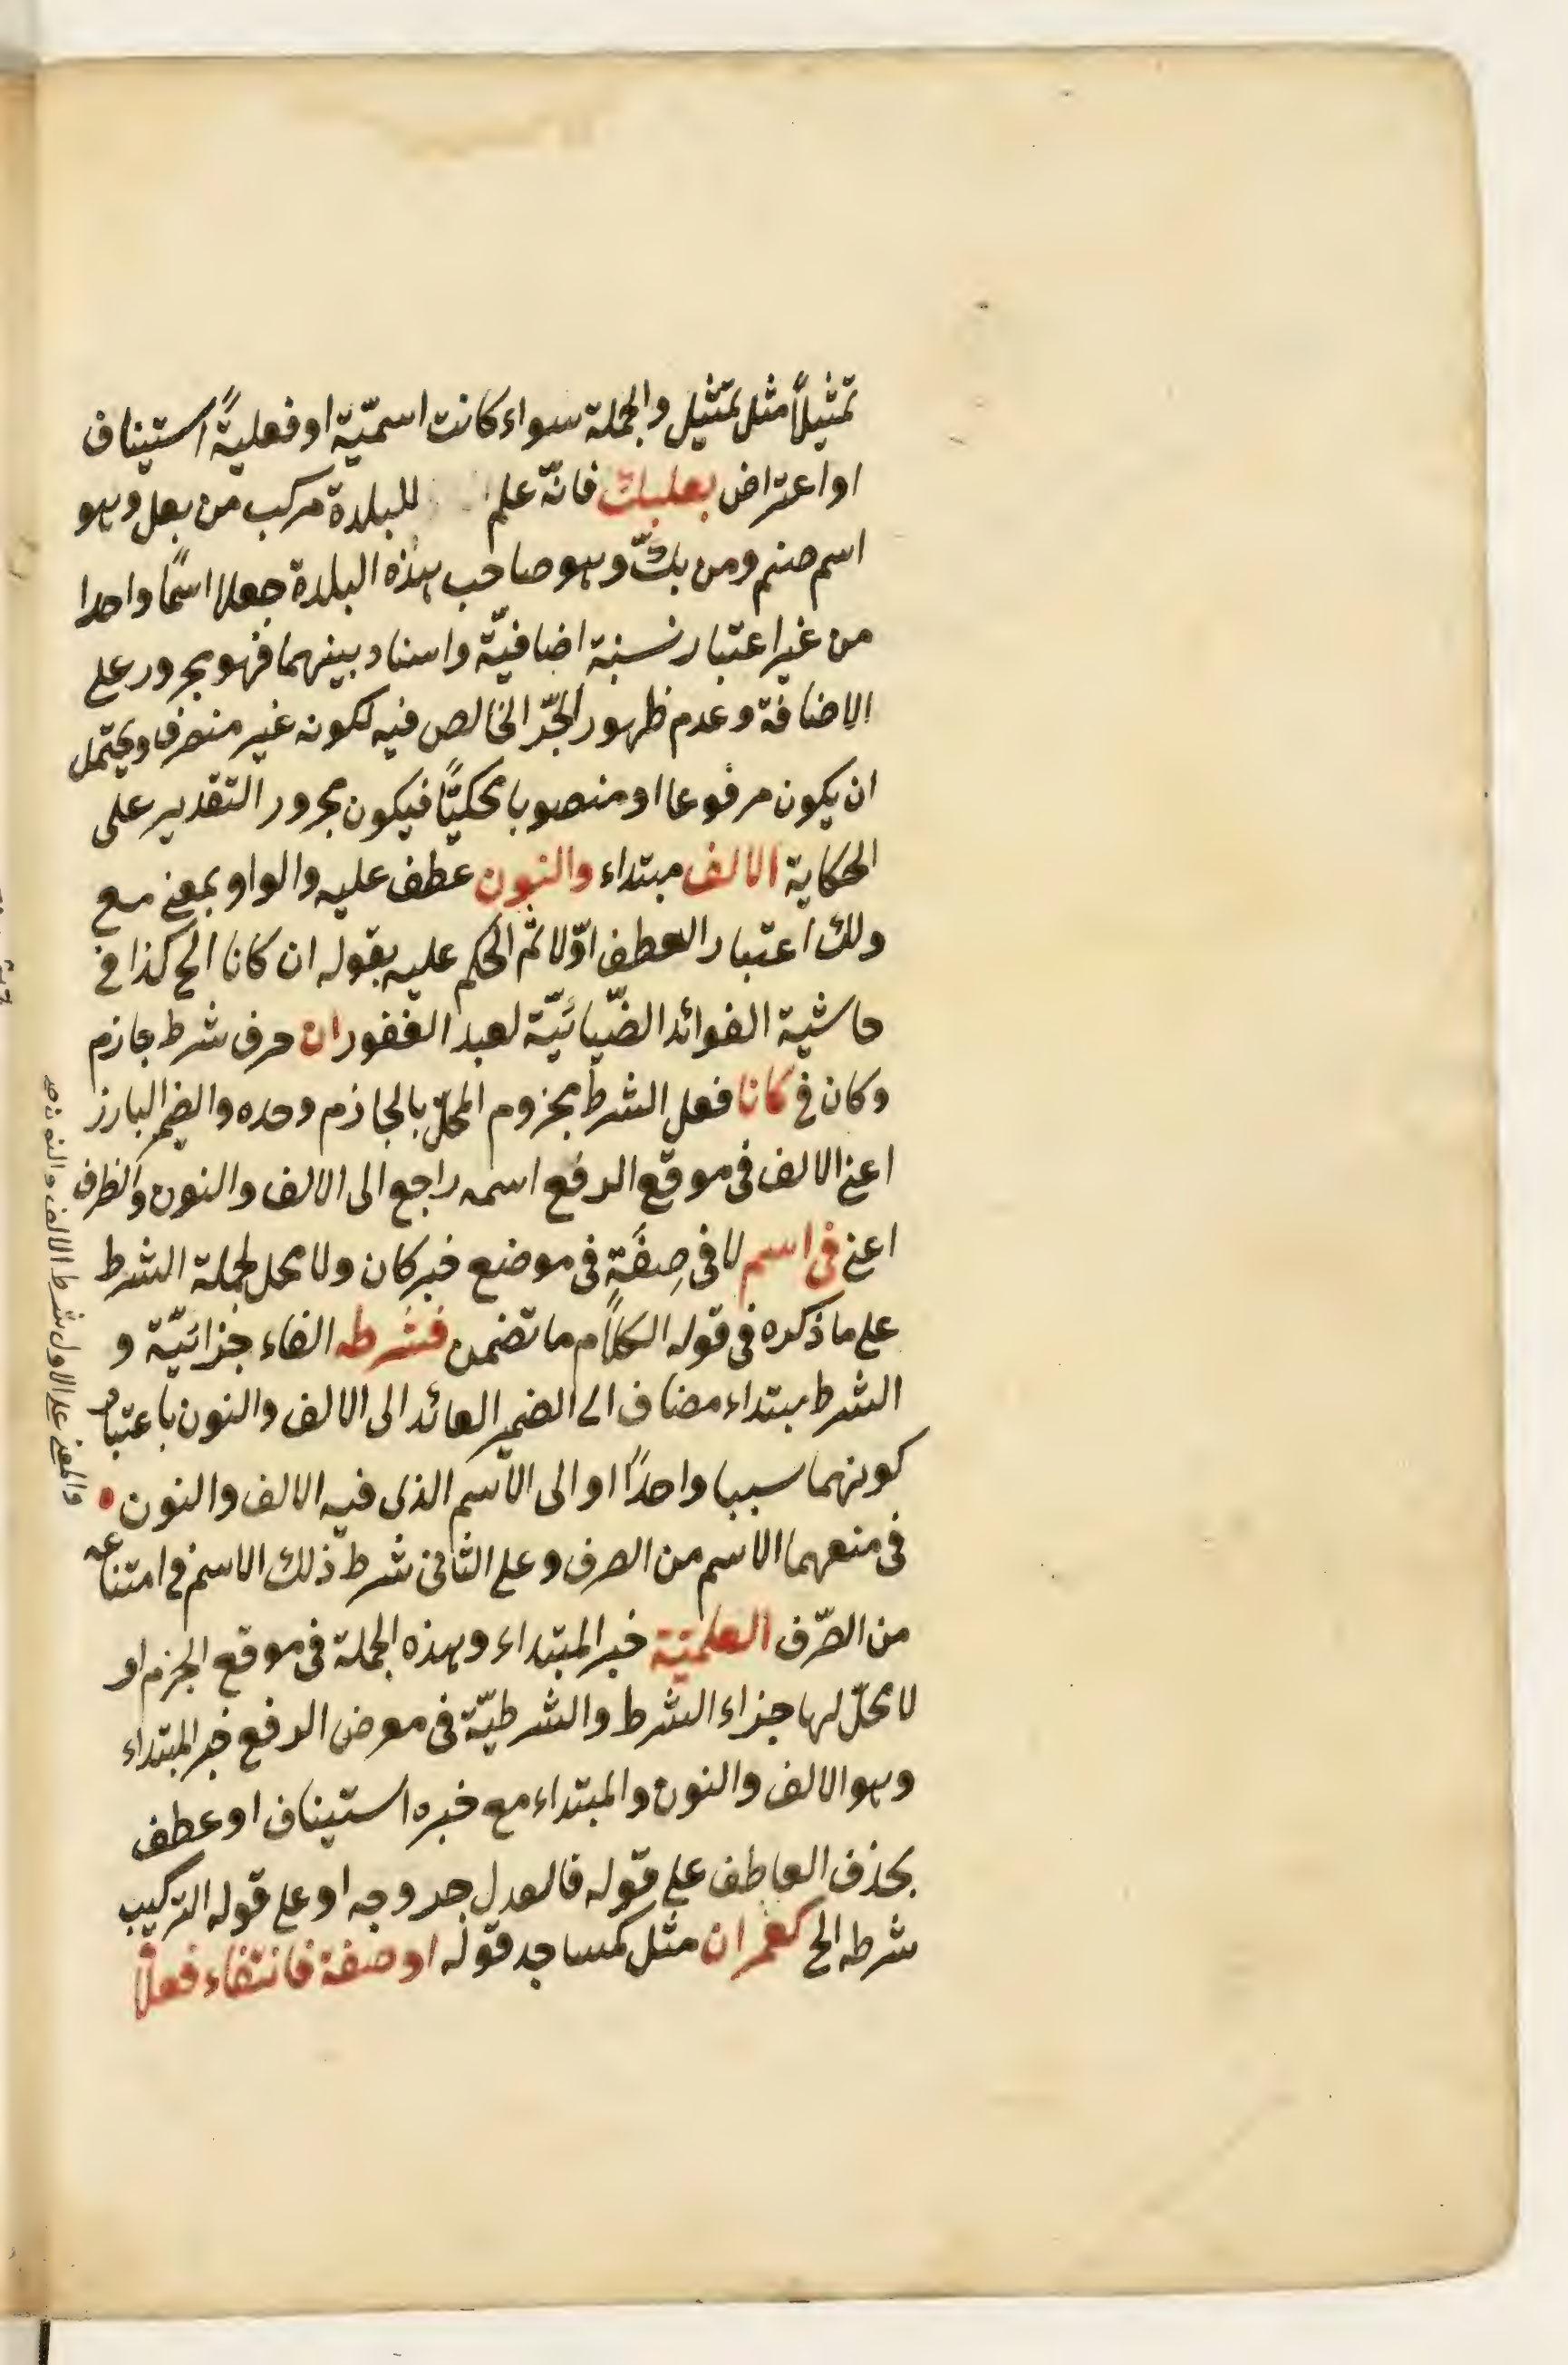 تمثيلاً مثل تمثيل والجملة سواء كانت اسميّة او فعليةً استيناف
او اعتراض بعلبك فانّه علم للبلدة مركب من بعل وهو
اسم صنم ومن بكّ وهو صاحب هذه البلدة جعلا اسمًا واحدا
من غير اعتبار نسبة اضافيّة واسناد بينهما فهو مجرور على
الاضافة وعدم ظهور الجرّ الخالص فيه لكونه غير منصرف ويحتمل
ان يكون مرفوعا او منصوبا محكيًّا فيكون مجرور التقدير على
الحكاية الالف مبتداء والنون عطف عليه والواو بمعنى مع
ولك اعتبار العطف اوّلا ثم الحكم عليه بقوله ان كانا الخ كذا فى
حاشية الفوائد الضّيائيّة لعبد الغفور ان حرف شرط جازم
وكان فى كانا فعل الشرط مجزوم المحلّ بالجازم وحده والضمير البارز
اعنى الالف فى موقع الرفع اسمه راجع الى الالف والنون والظرف
اعنى فى اسم لا فى صِفَةٍ فى موضع خبر كان ولا محل لجملة الشرط
على ما ذكره فى قوله الكلام ما تضمن فشرطه الفاء جزائيّة و
الشرط مبتداء مضاف الى الضمير العائد الى الالف والنون باعتبار
كونهما سببا واحدًا او الى الاسم الذى فيه الالف والنون
فى منعهما الاسم من الصرف وعلى الثانى شرط ذلك الاسم فى امتناعه
من الصّرف العلميّة خبر المبتداء وهذه الجملة فى موقع الجزم او
لا محلّ لها جزاء الشرط والشرطيّة فى معرض الرفع خبر المبتداء
وهو الالف والنون والمبتداء مع خبره استيناف او عطف
بحذف العاطف على قوله فالعدل خروجه او على قوله التركيب
شرطه الخ كعمران مثل كمساجد قوله او صفة فانتفاء فعلا
والمعنى على الاول شرط الالف والنون